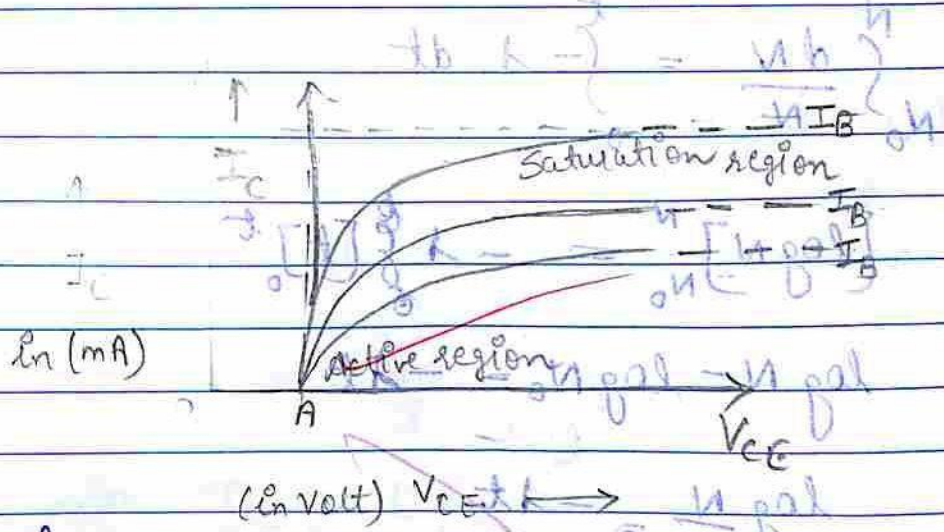 I_B
I_C
Saturation region
I_B
I_B
in (mA)
Active region
A
V_CE
(in volt) V_CE